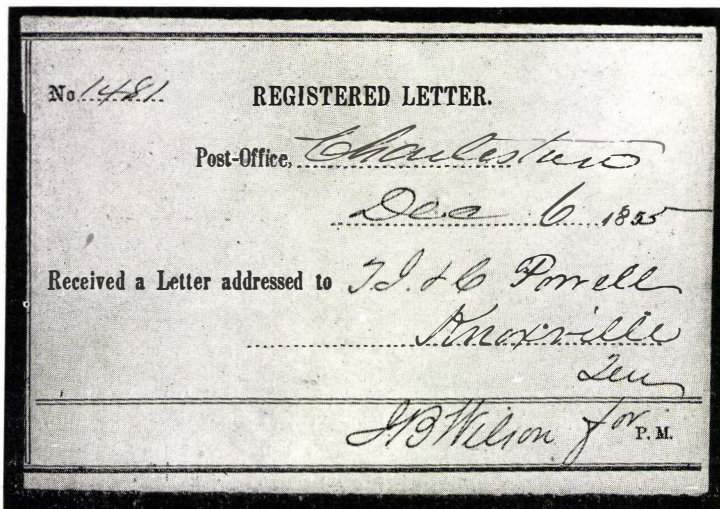 No 1481 REGISTERED LETTER.
Post-Office, Charleston
Dec 6 1855
Received a Letter addressed to T. J. & C Powell
Knoxville
Ten
J B Wilson for P. M.